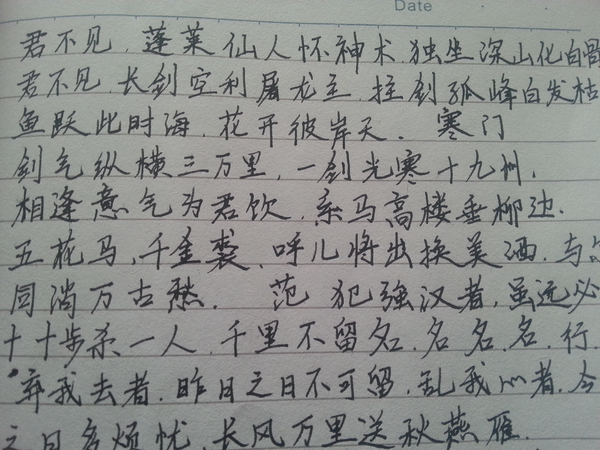 Date
君不见,蓬莱仙人怀神术.独坐深山化白骨
君不见,长剑空利屠龙主,拄剑孤峰白发枯
鱼跃此时海,花开彼岸天. 寒门
剑气纵横三万里,一剑光寒十九州.
相逢意气为君饮,系马高楼垂柳边.
五花马,千金裘,呼儿将出换美酒,与
同消万古愁. 范 犯强汉者,虽远必
十十步杀一人,千里不留名.名.名.名.行.
弃我去者.昨日之日不可留,乱我心者.今
之日多烦忧,长风万里送秋燕雁.